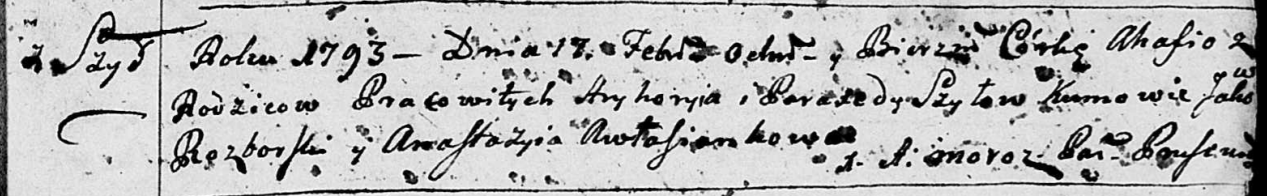 z Szył
Roku 1793 – Dnia 17. Febr. Ochr. y Bierzm Córkę Ahafio z
Rodzicow Pracowitych Hryhoryja i Paraxedy Szyłow Kumowie Jako
Rezborski y Anastazyia Awłasiankowa
J. A. Moroz Par.